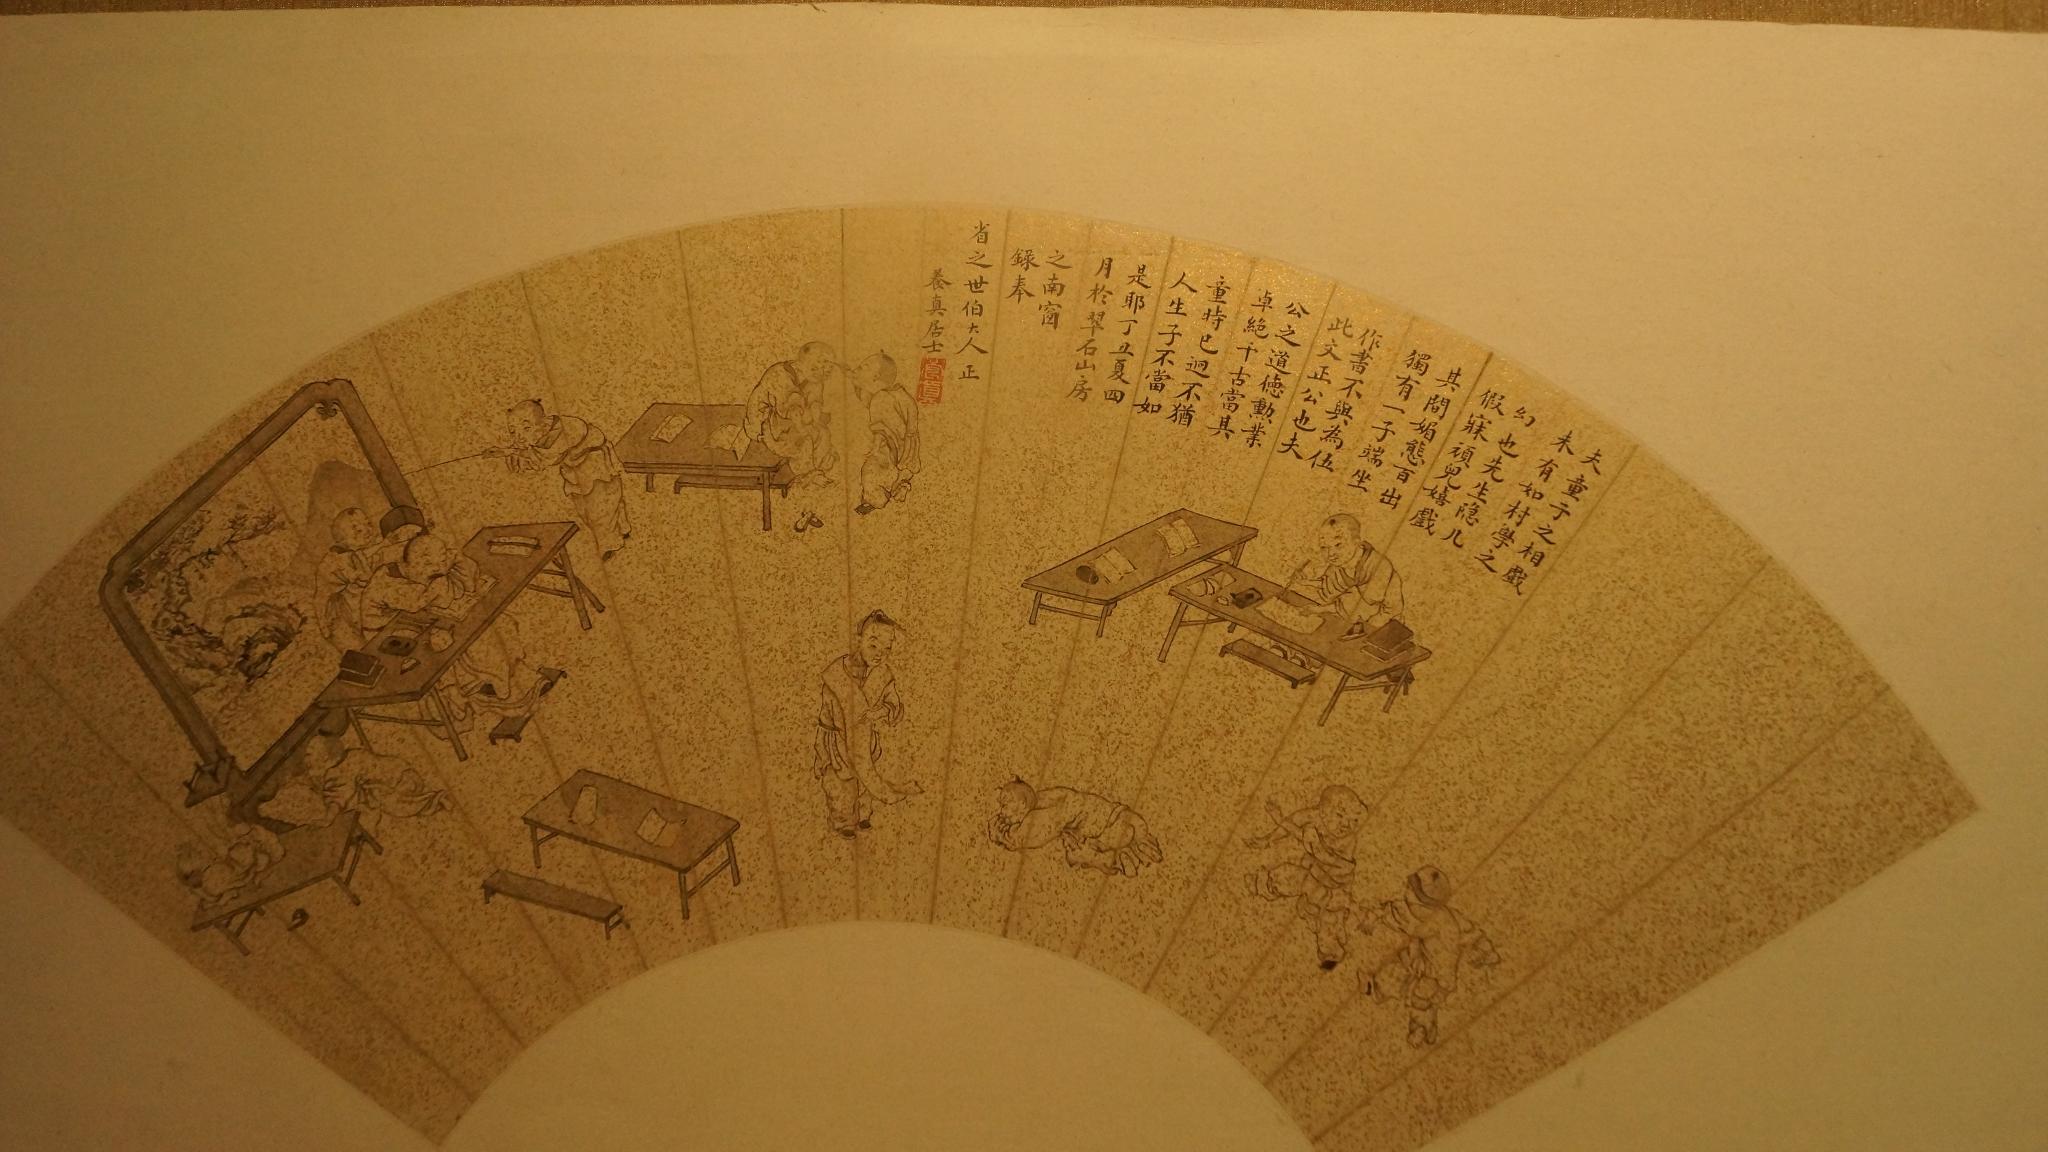 夫童子之相戲
未有如村學之
幻也先生隐几
假寐頑兒嬉戲
其間媚態百出
獨有一子端坐
作書不與為伍
此文正公也夫
公之道德勳業
卓絶千古當其
童時已迥不猶
人生子不當如
是耶丁丑夏四
月於翠石山房
之南窗
錄奉
省之世伯大人正
養真居士